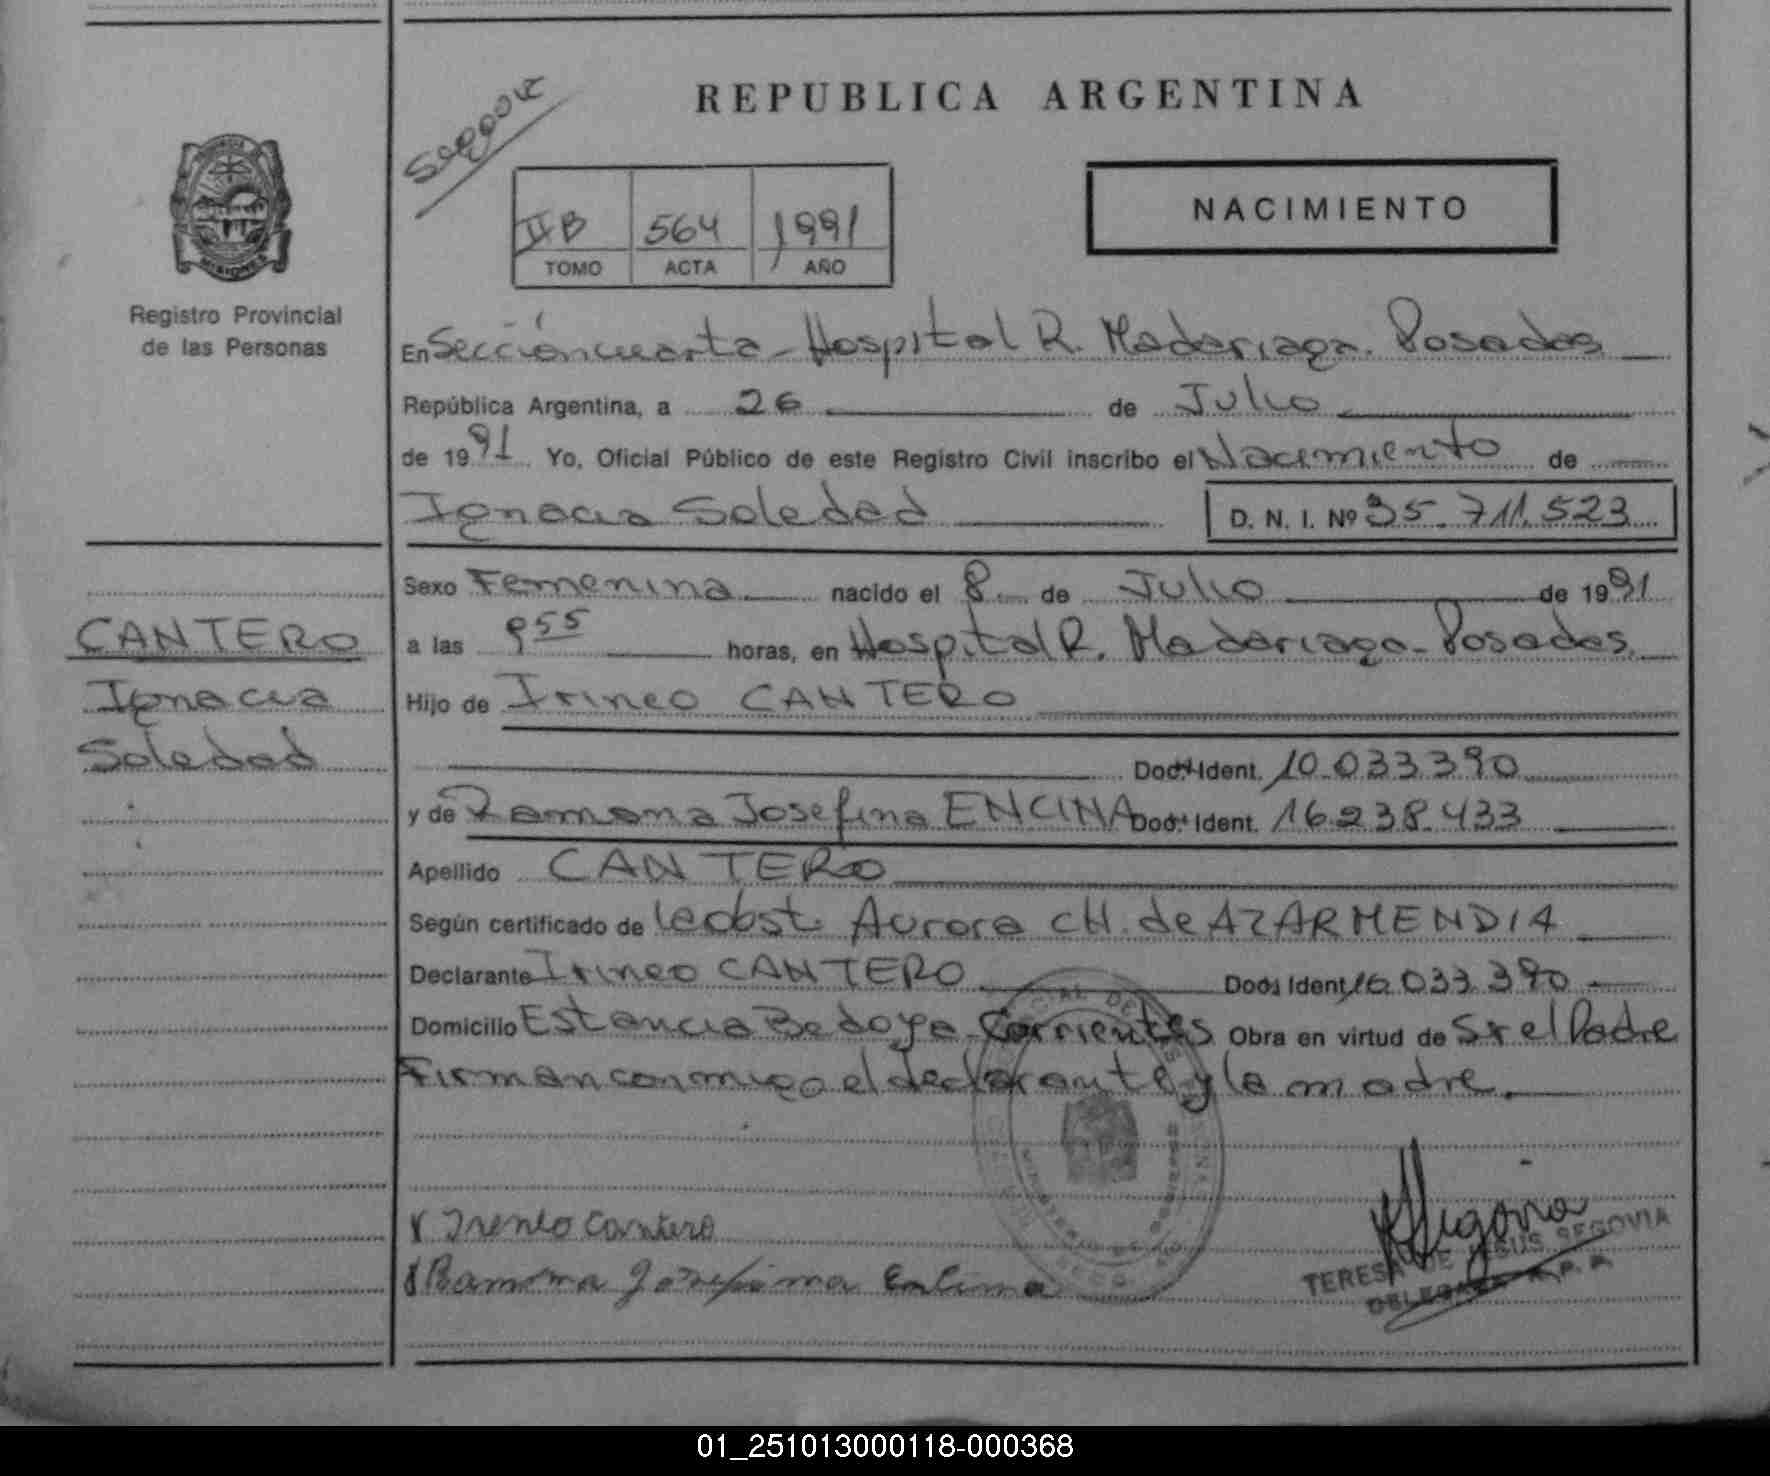 REPUBLICA ARGENTINA
NACIMIENTO
II B 564 1991
TOMO ACTA AÑO
MISIONES
Registro Provincial
de las Personas
En Sección cuarta - Hospital R. Madariaga. Posadas
República Argentina, a 26 de Julio
de 1991 Yo, Oficial Público de este Registro Civil inscribo el Nacimiento de
Ignacia Soledad D. N. I. Nº 35.711.523
Sexo Femenina nacido el 8 de Julio de 1991
CANTERO
Ignacia
Soledad
a las 9 55 horas, en Hospital R. Madariaga - Posadas.
Hijo de Irineo CANTERO
Doc. Ident. 10.033.390
y de Ramona Josefina ENCINA Doc. Ident. 16.238.433
Apellido CANTERO
Según certificado de la obst. Aurora CH. de AZARMENDIA
Declarante Irineo CANTERO Doc. Ident. 10.033.390
Domicilio Estancia Bedoya Corrientes Obra en virtud de Sr el Padre
Firman conmigo el declarante y la madre.
Ireneo Cantero
Ramona Josefina Encina
Segovia
TERESA DE JESUS SEGOVIA
DELEGADA R. P. P.
01_251013000118-000368